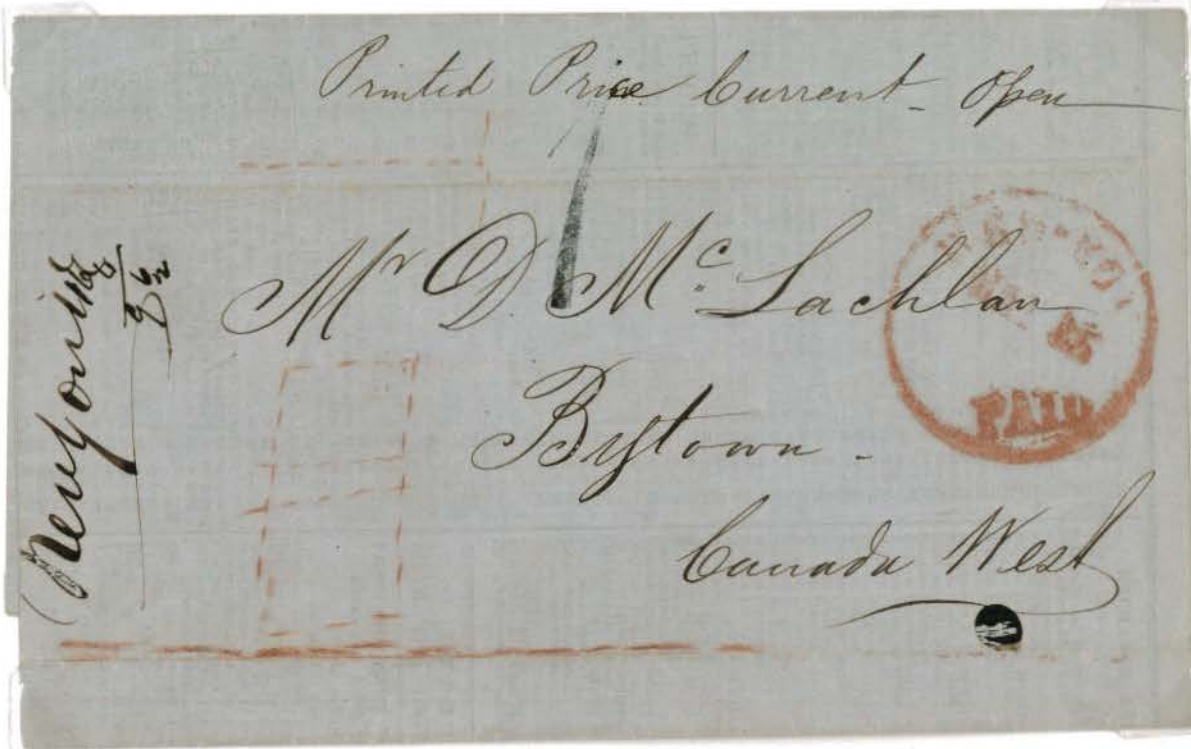 Printed Price Current - Open
1
Mr D. Mc. Lachlan
Bytown -
Canada West
PAID
New York